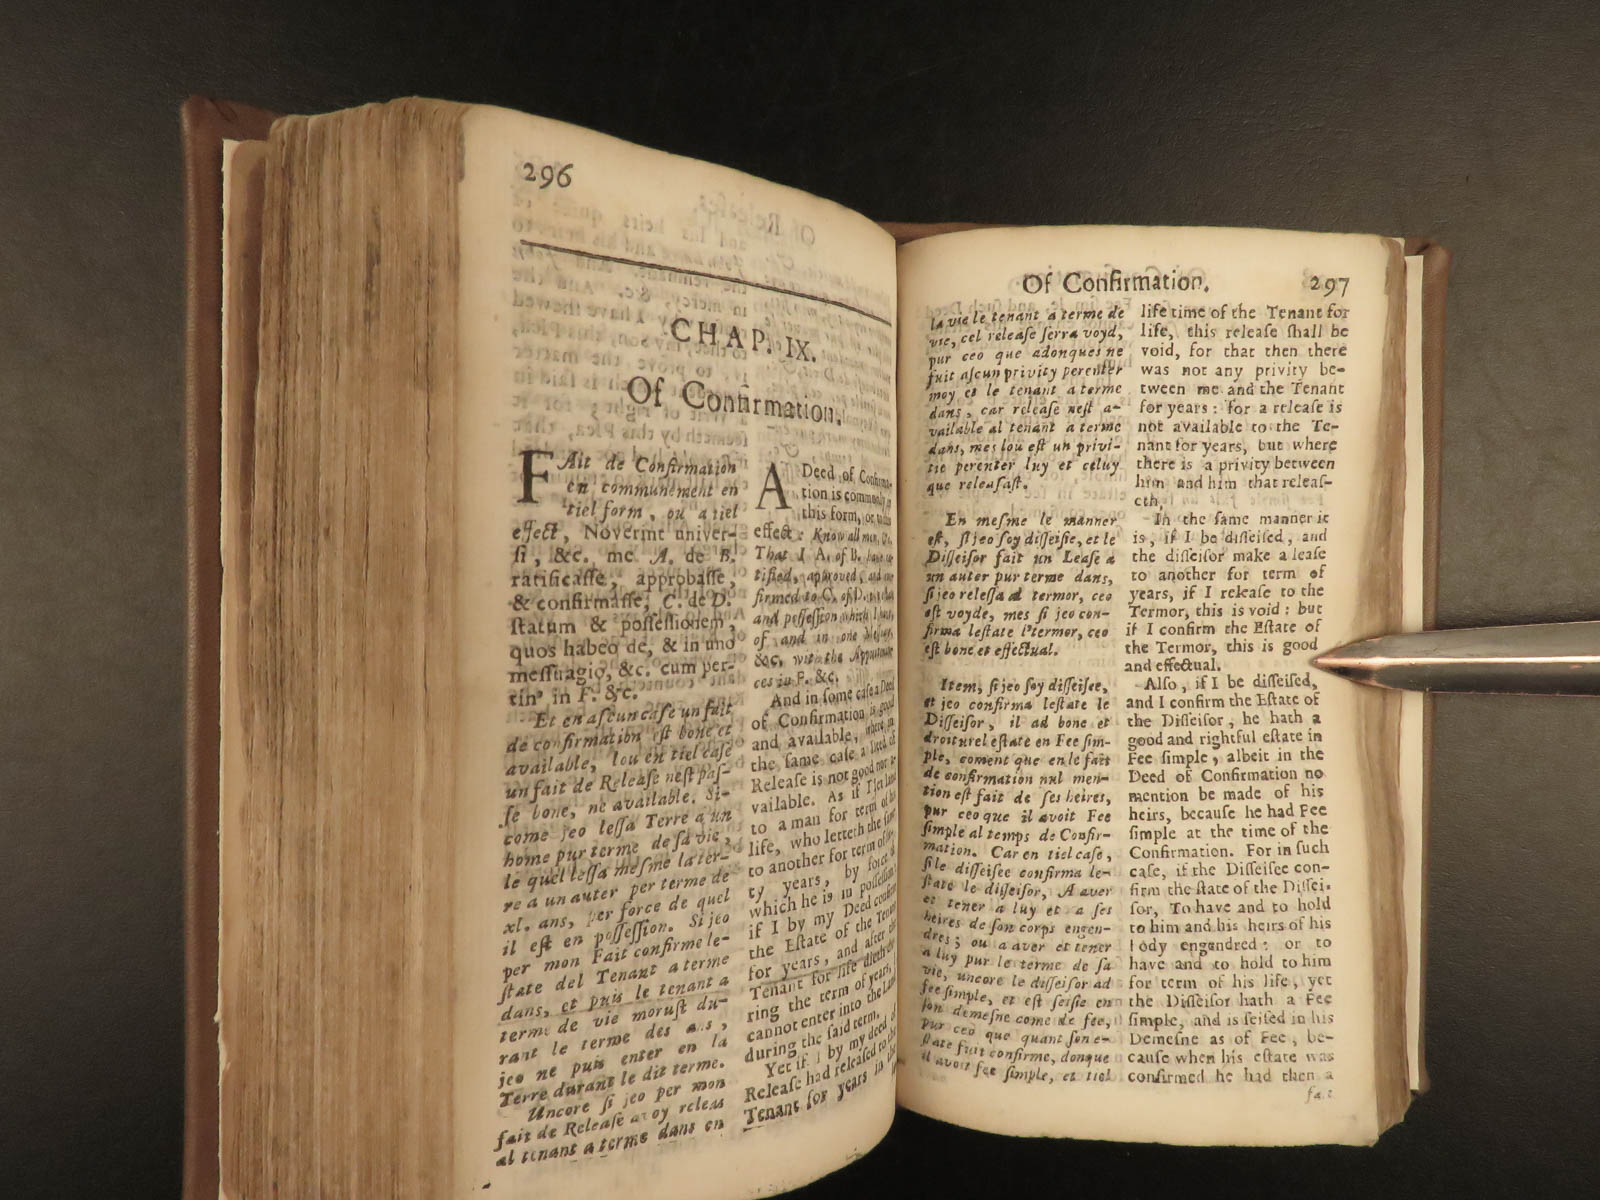 296
CHAP. IX.
Of Confirmation.
FAit de Confirmation
en communement en
tiel form, ou a tiel
effect, Noverint univer-
si, &c. me A. de B.
ratificasse, approbasse,
& confirmasse, C. de D.
statum & possessionem,
quos habeo de, & in uno
messuagio, &c. cum per-
tin' in F. &c.
Et en ascun case un fait
de confirmation est bone et
available, lou en tiel case
un fait de Release nest pas-
se bone, ne available. Si-
come jeo lessa Terre a un
home pur terme de sa vie,
le quel lessa mesme la ter-
re a un auter per terme de
xl. ans, per force de quel
il est en possession. Si jeo
per mon Fait confirme le-
state del Tenant a terme
dans, et puis le tenant a
terme de vie morust du-
rant le terme des ans,
jeo ne puis enter en la
Terre durant le dit terme.
Uncore si jeo per mon
fait de Release avoy releas
al tenant a terme dans en
A Deed of Confirma-
tion is commonly in
this form, or to this
effect: Know all men, &c.
That I A. of B. have
tified, approved, and
firmed to C. of D.
and possession which I have,
of and in one
&c. with the
ces in F. &c.
And in some case a Deed
of Confirmation is good
and available, where in
the same case a Deed of
Release is not good nor
vailable. As if I let land
to a man for term of his
life, who letteth the same
to another for term of
ty years, by force of
which he is in possession
if I by my Deed confirm
the Estate of the Tenant
for years, and after the
Tenant for life dieth du-
ring the term of years, I
cannot enter into the Land
during the said term.
Yet if I by my deed of
Release had released to the
Tenant for years in the
Of Confirmation. 297
la vie le tenant a terme de
vie, cel release serra voyd,
pur ceo que adonques ne
fuit ascun privity perenter
moy et le tenant a terme
dans, car release nest a-
vailable al tenant a terme
dans, mes lou est un privi-
tie perenter luy et celuy
que releasast.
En mesme le manner
est, si jeo soy disseisie, et le
Disseisor fait un Lease a
un auter pur terme dans,
si jeo relessa al termor, ceo
est voyde, mes si jeo con-
firma lestate l'termor, ceo
est bone et effectual.
Item, si jeo soy disseisee,
et jeo confirma lestate le
Disseisor, il ad bone et
droiturel estate en Fee sim-
ple, coment que en le fait
de confirmation nul men-
tion est fait de ses heires,
pur ceo que il avoit Fee
simple al temps de Confir-
mation. Car en tiel case,
si le disseisee confirma le-
state le disseisor, A aver
et tener a luy et a ses
heires de son corps engen-
dres; ou a aver et tener
a luy pur le terme de sa
vie, uncore le disseisor ad
fee simple, et est seisie en
son demesne come de fee,
pur ceo que quant son e-
state fuit confirme, donque
il avoit fee simple, et tiel
life time of the Tenant for
life, this release shall be
void, for that then there
was not any privity be-
tween me and the Tenant
for years: for a release is
not available to the Te-
nant for years, but where
there is a privity between
him and him that releas-
eth.
In the same manner it
is, if I be disseised, and
the disseisor make a lease
to another for term of
years, if I release to the
Termor, this is void: but
if I confirm the Estate of
the Termor, this is good
and effectual.
Also, if I be disseised,
and I confirm the Estate of
the Disseisor, he hath a
good and rightful estate in
Fee simple, albeit in the
Deed of Confirmation no
mention be made of his
heirs, because he had Fee
simple at the time of the
Confirmation. For in such
case, if the Disseisee con-
firm the state of the Dissei-
sor, To have and to hold
to him and his heirs of his
body engendred: or to
have and to hold to him
for term of his life, yet
the Disseisor hath a Fee
simple, and is seised in his
Demesne as of Fee, be-
cause when his estate was
confirmed he had then a